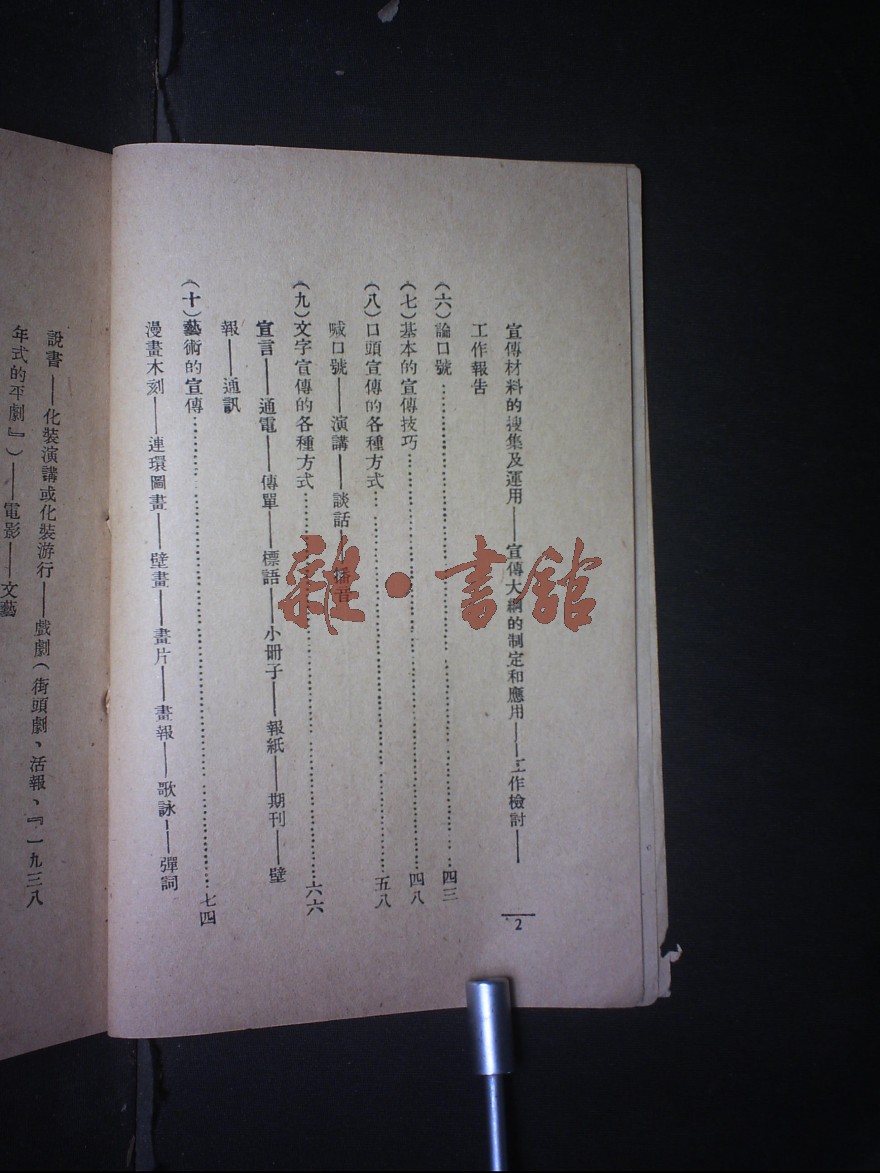 宣傳材料的搜集及運用——宣傳大綱的制定和應用——工作檢討——
工作報告
(六)論口號……四三
(七)基本的宣傳技巧……四八
(八)口頭宣傳的各種方式……五八
喊口號——演講——談話——播音
(九)文字宣傳的各種方式……六六
宣言——通電——傳單——標語——小冊子——報紙——期刊——壁
報——通訊
(十)藝術的宣傳……七四
漫畫木刻——連環圖畫——壁畫——畫片——畫報——歌詠——彈詞
2
說書——化裝演講或化裝游行——戲劇(街頭劇、活報、『一九三八
年式的平劇』)——電影——文藝
雜·書館